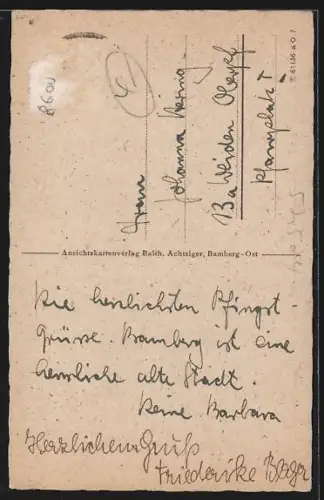 8600
4
Frau
Johanna
13a Weiden Oberpf
Pfarrplatz 7
W 61136 a O J.
Ansichtskartenverlag Balth. Achtziger, Bamberg-Ost
Die herrlichsten Pfingst-
Grüsse. Bamberg ist eine
herrliche alte Stadt.
Deine Barbara
Herzlichen Gruß
Friederike